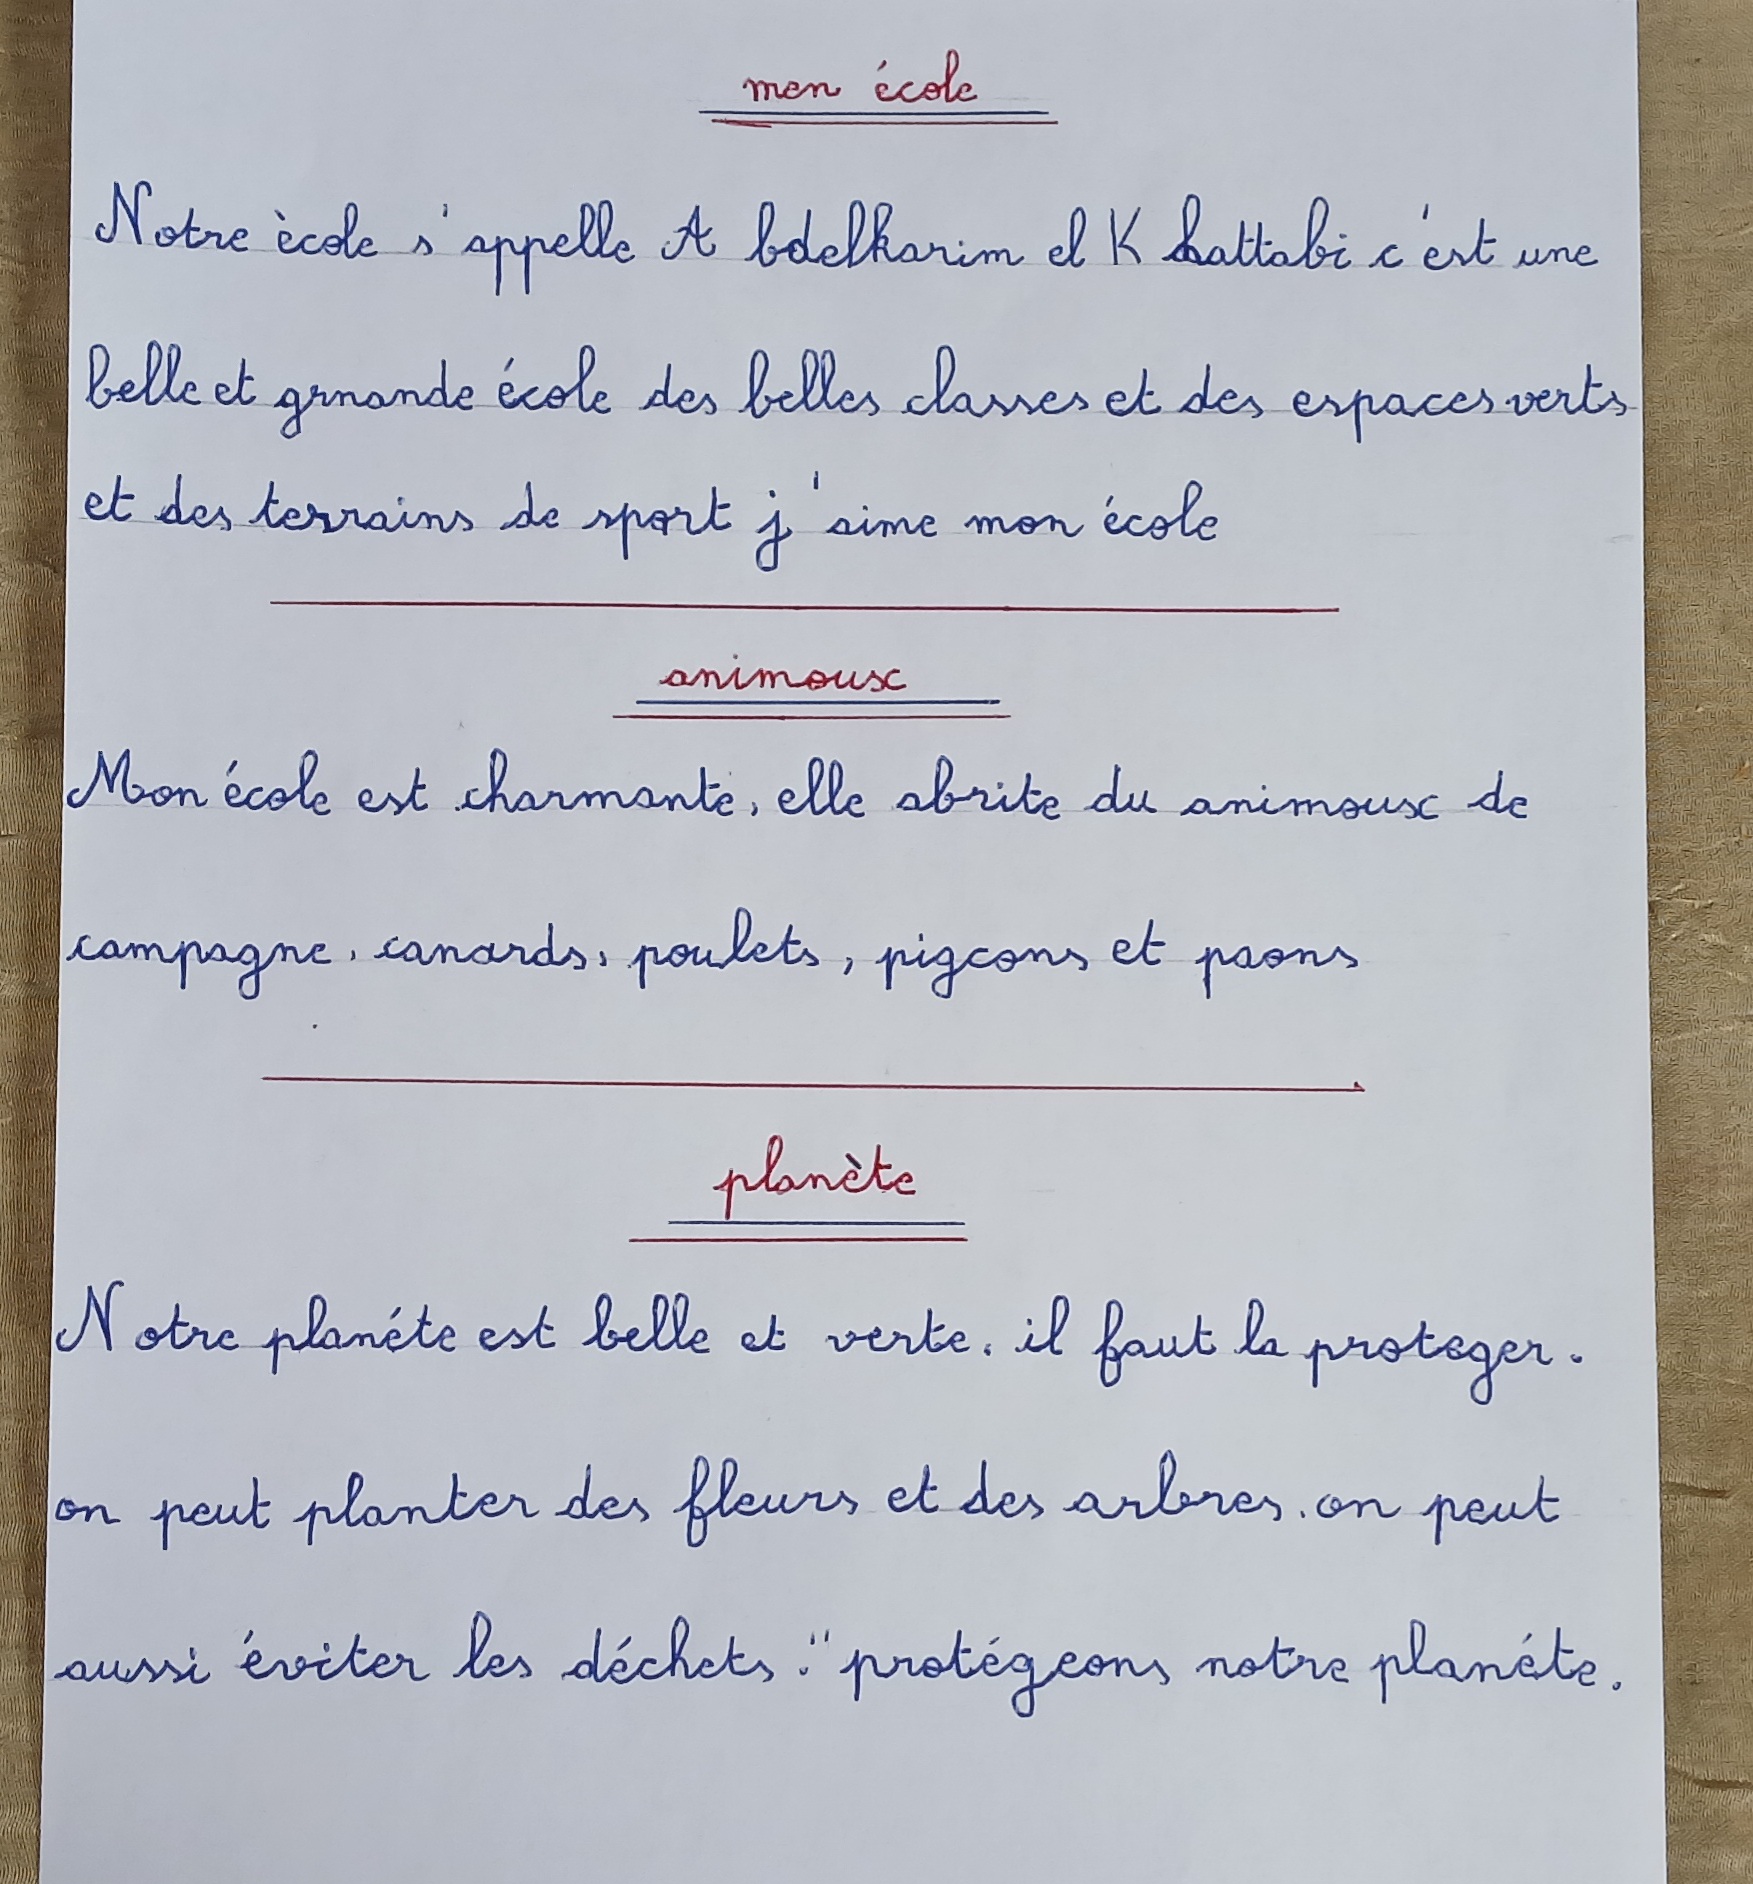 mon école
Notre ècole s'appelle A bdelkarim el K hattabi c'est une
belle et grnande école des belles classes et des espaces verts
et des terrains de sport j'aime mon école
animoux
Mon école est charmante, elle abrite du animoux de
campagne, canards, poulets, pigeons et paons
planète
Notre planéte est belle et verte. il faut la proteger.
on peut planter des fleurs et des arbres. on peut
aussi éviter les déchets." protégeons notre planéte.